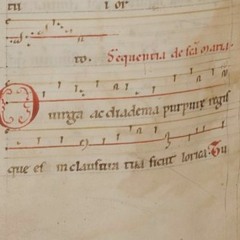 tu i or
to. Sequentia de sca maria
O uirga ac diadema purpure regis
que es in clausura tua sicut lorica Tu